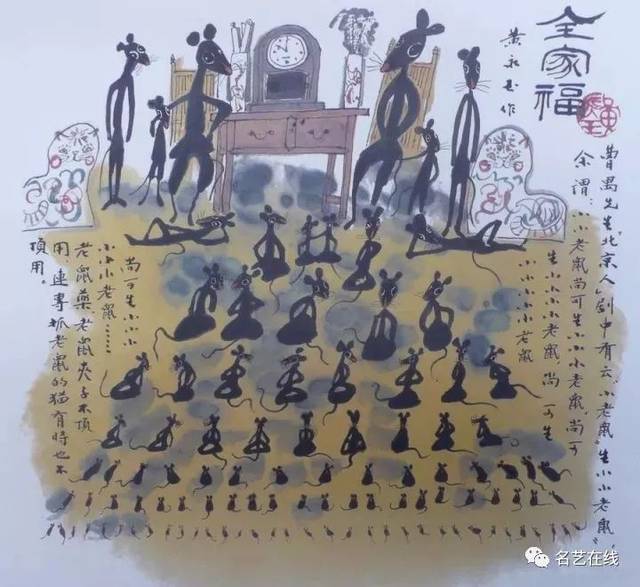 全家福
黄永玉作
曹禺先生《北京人》剧中有云，小老鼠“生小小老鼠。”
余谓：小小老鼠尚可生小小小老鼠，尚可
生小小小小老鼠，尚可生
小小小小小老鼠
尚可生小小小
小小小老鼠……
老鼠药，老鼠夹子不顶
用，连专抓老鼠的猫有时也不
顶用。
名艺在线